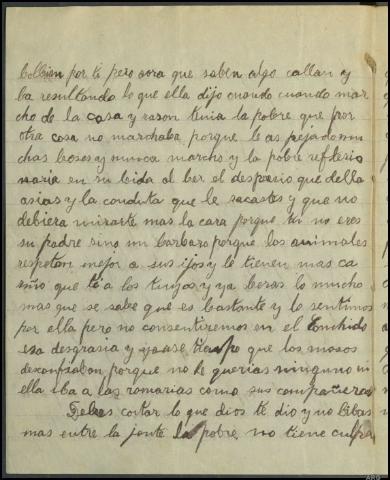 bolbian por ti pero aora que saben algo callan y
ba resultando lo que ella dijo cuando cuando mar
cho de la casa y rason tenia la pobre que por
otra cosa no marchaba porque le as pejado mu
chas beses y nunca marcho y la pobre
en su bida al ber el despresio que della
asias y la conduta que le sacastes y que no
debiera mirarte mas la cara porque tu no eres
su padre sino un barbaro porque los animales
respetan mejor a sus ijos y le tienen mas ca
riño que tu a los tuyos y ya beras lo mucho
mas que se sabe que es bastante y lo sentimos
por ella pero no consentiremos en el
esa desgrasia y ya ase tiempo que los mosos
desconfiaban porque no le querias ninguno ni
ella iba a las romarias como sus compañeras
Debes cortar lo que dios te dio y no bibas
mas entre la jente la pobre no tiene culpa